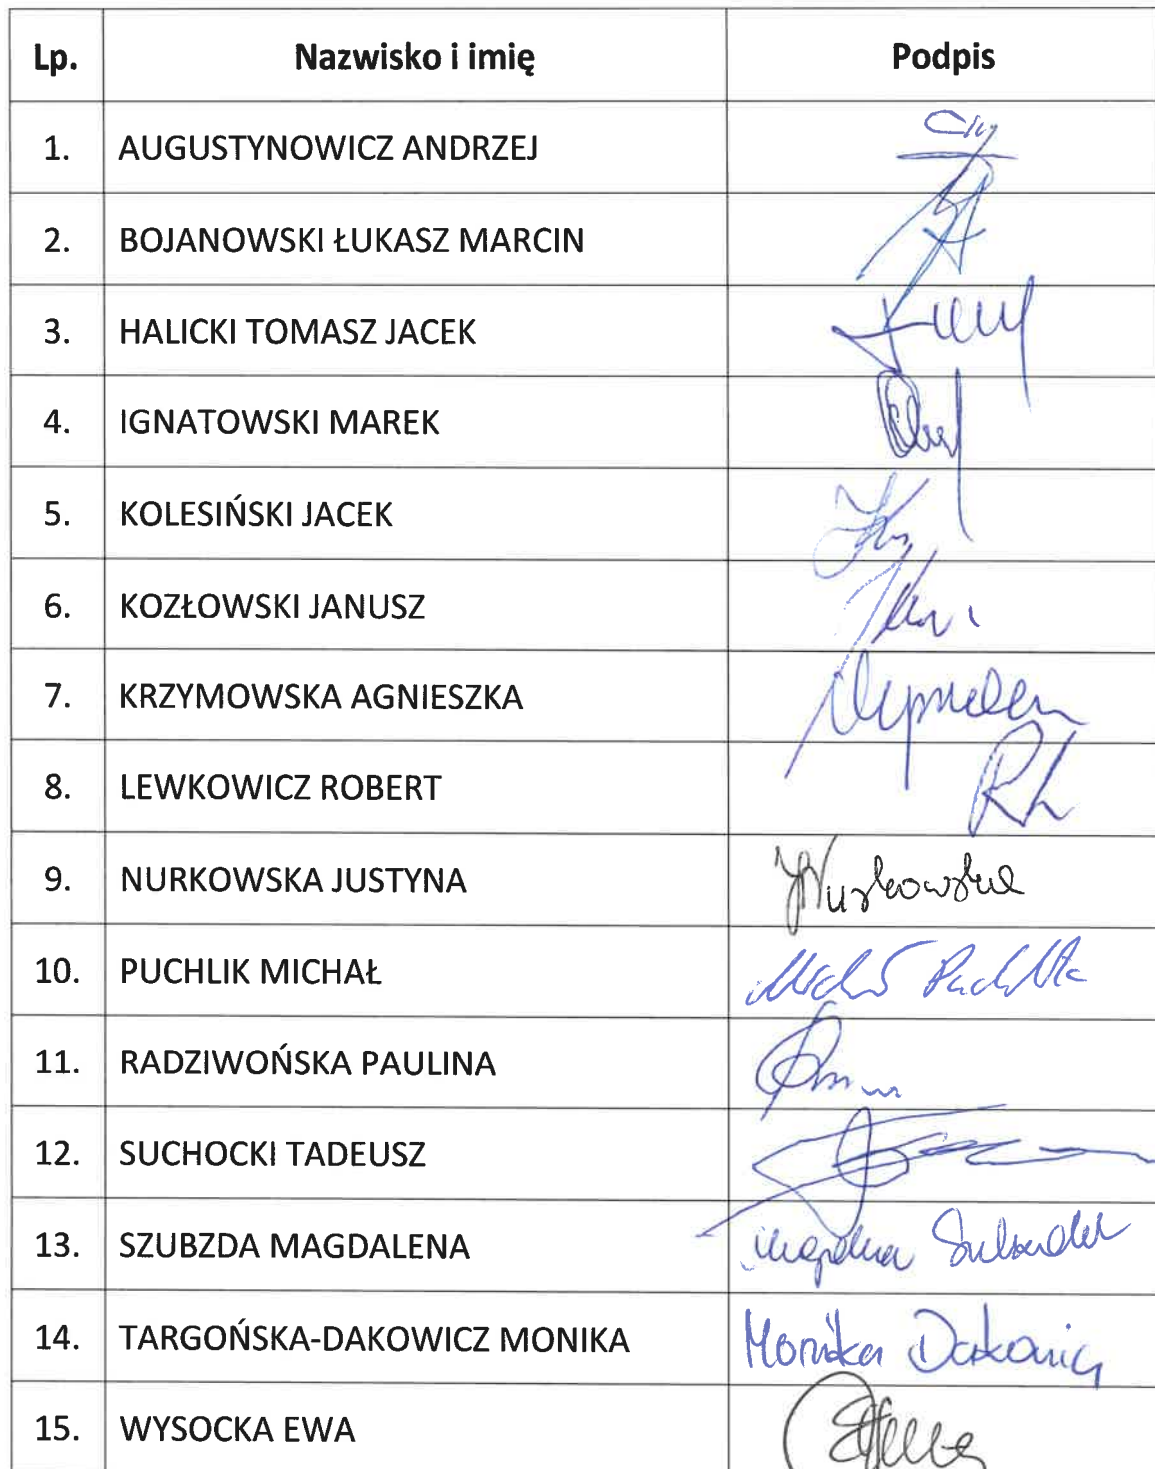 Lp. Nazwisko i imię Podpis
1. AUGUSTYNOWICZ ANDRZEJ
2. BOJANOWSKI ŁUKASZ MARCIN
3. HALICKI TOMASZ JACEK
4. IGNATOWSKI MAREK
5. KOLESIŃSKI JACEK
6. KOZŁOWSKI JANUSZ
7. KRZYMOWSKA AGNIESZKA
8. LEWKOWICZ ROBERT RL
9. NURKOWSKA JUSTYNA JNurkowska
10. PUCHLIK MICHAŁ
11. RADZIWOŃSKA PAULINA
12. SUCHOCKI TADEUSZ
13. SZUBZDA MAGDALENA
14. TARGOŃSKA-DAKOWICZ MONIKA Monika Dakowicz
15. WYSOCKA EWA